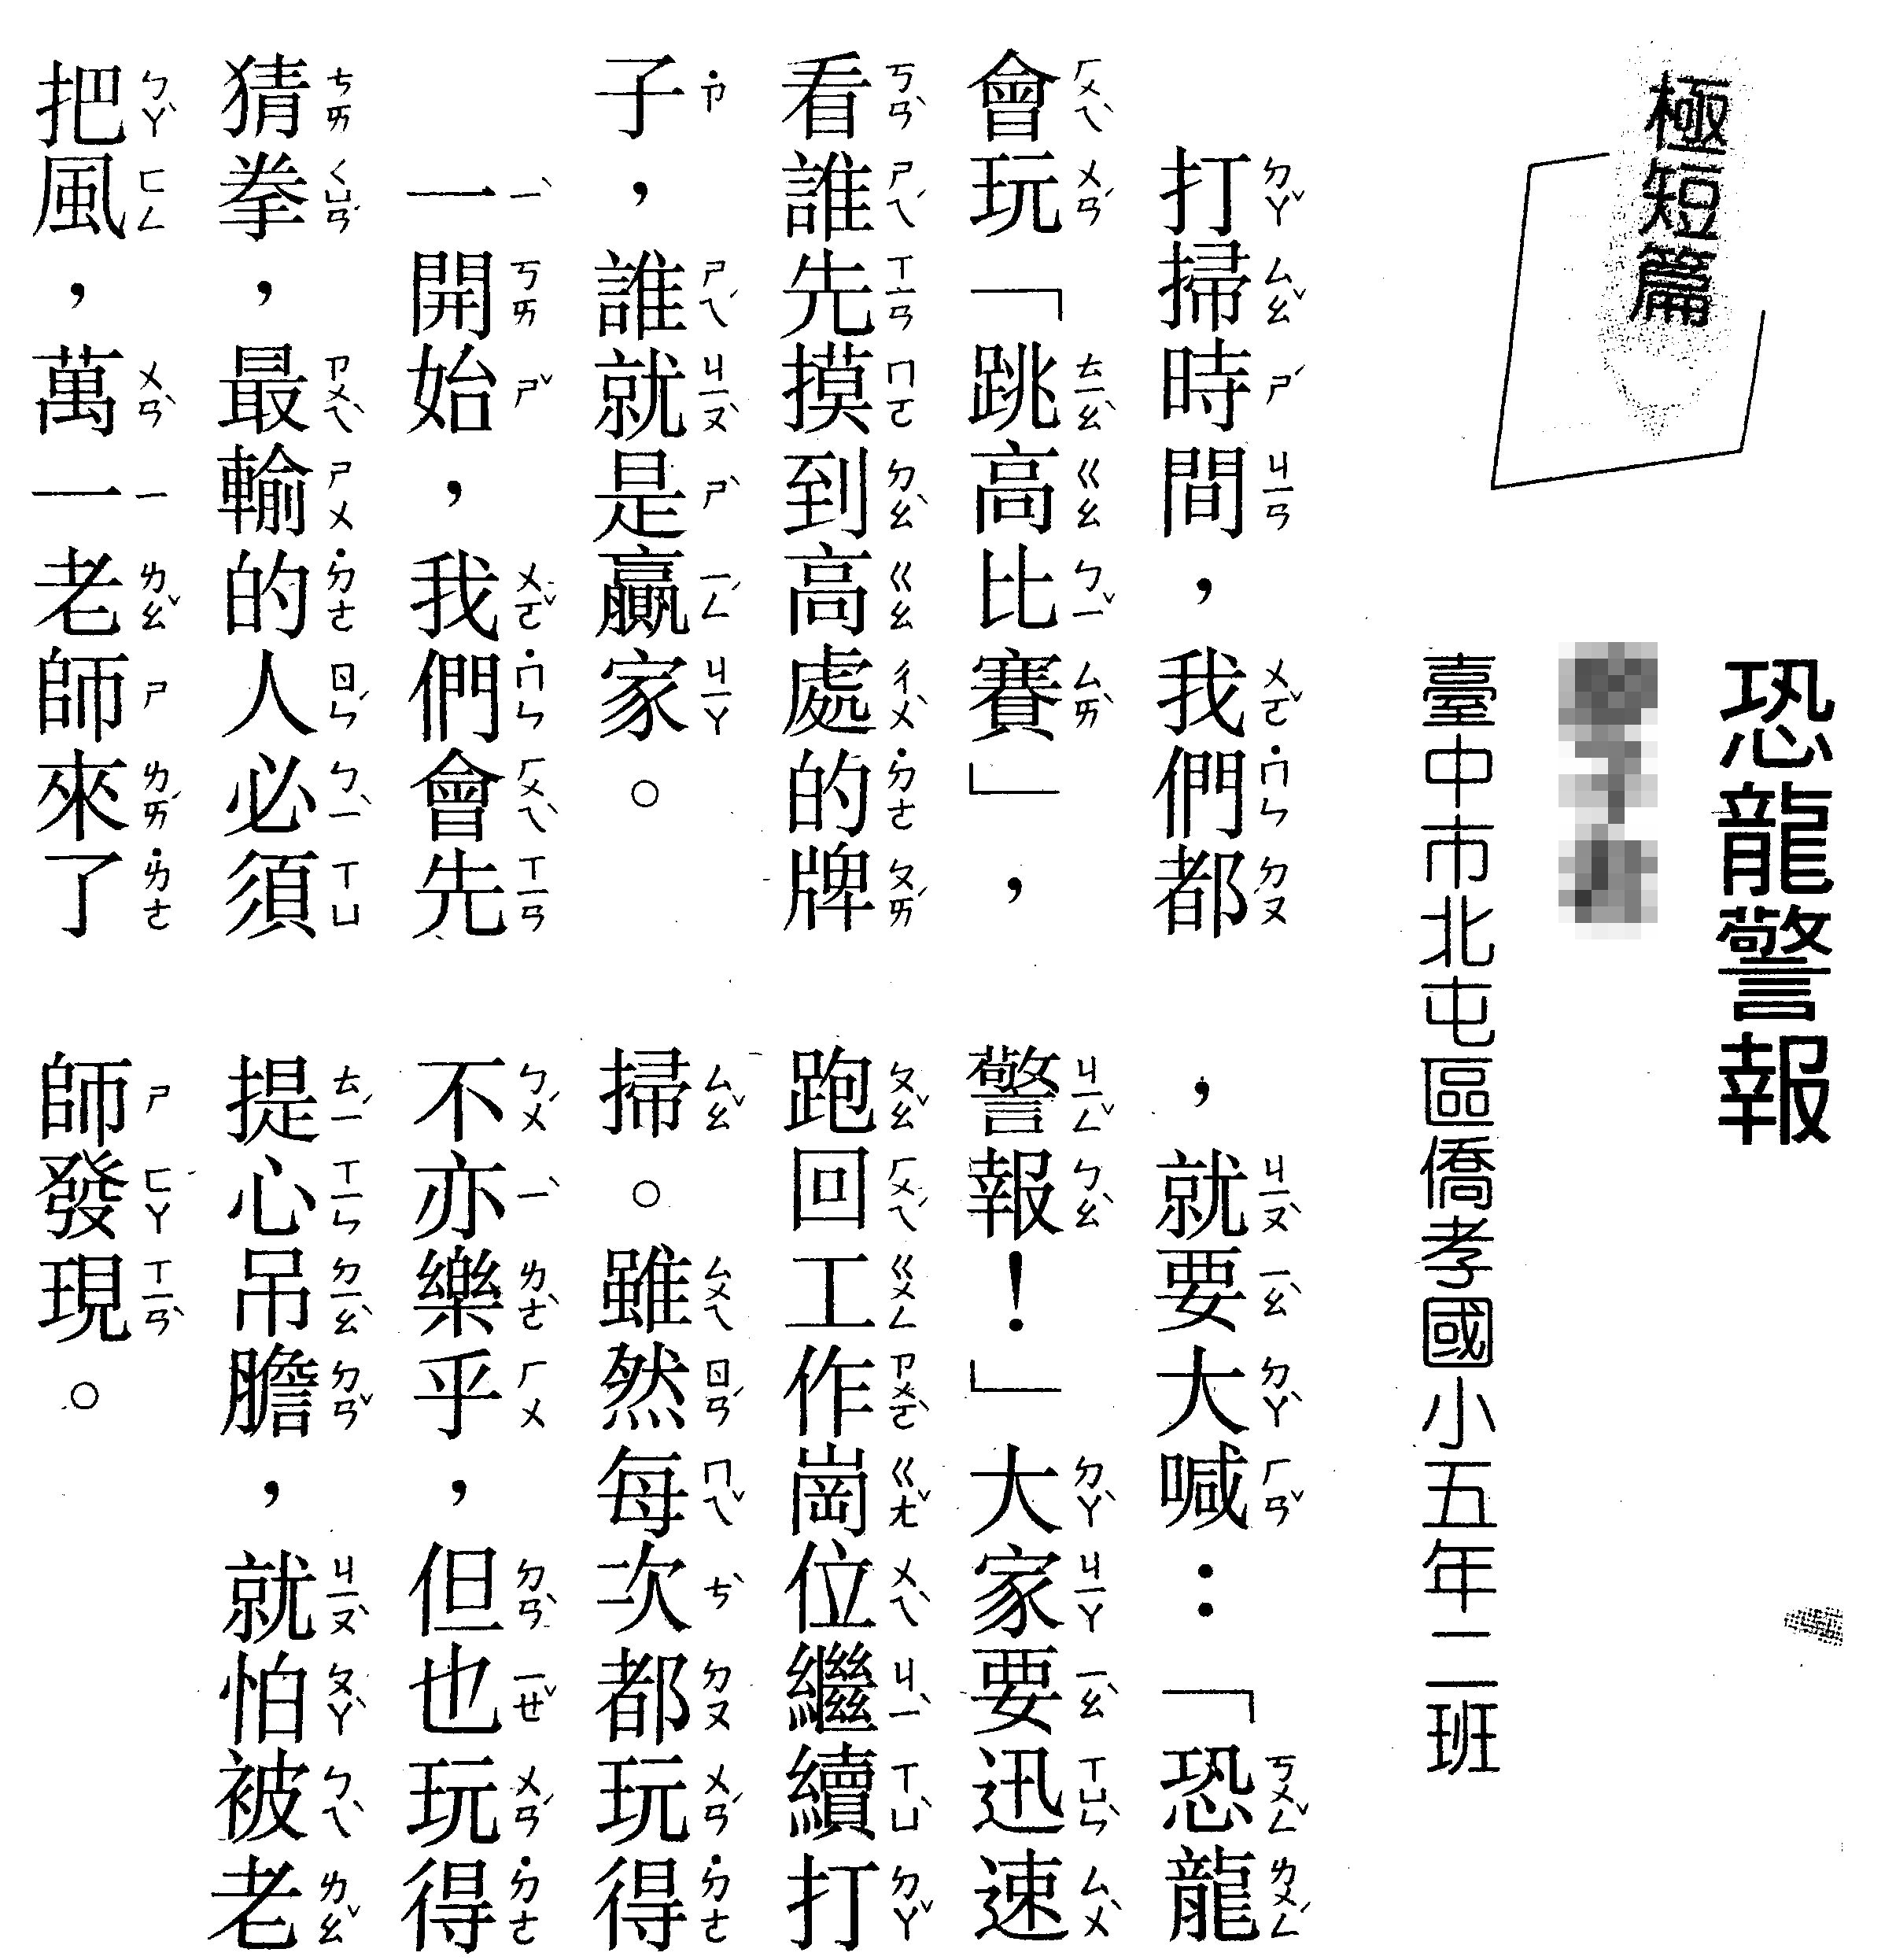 極短篇
恐龍警報
臺中市北屯區僑孝國小五年二班
打掃時間，我們都
會玩「跳高比賽」，
看誰先摸到高處的牌
子，誰就是贏家。
一開始，我們會先
猜拳，最輸的人必須
把風，萬一老師來了
，就要大喊：「恐龍
警報！」大家要迅速
跑回工作崗位繼續打
掃。雖然每次都玩得
不亦樂乎，但也玩得
提心吊膽，就怕被老
師發現。